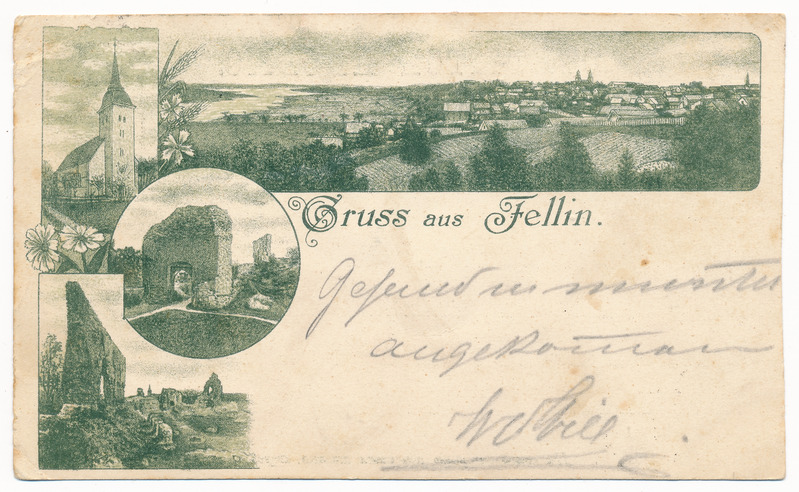 Gruss aus Fellin.
Gesund u. munter
angekommen